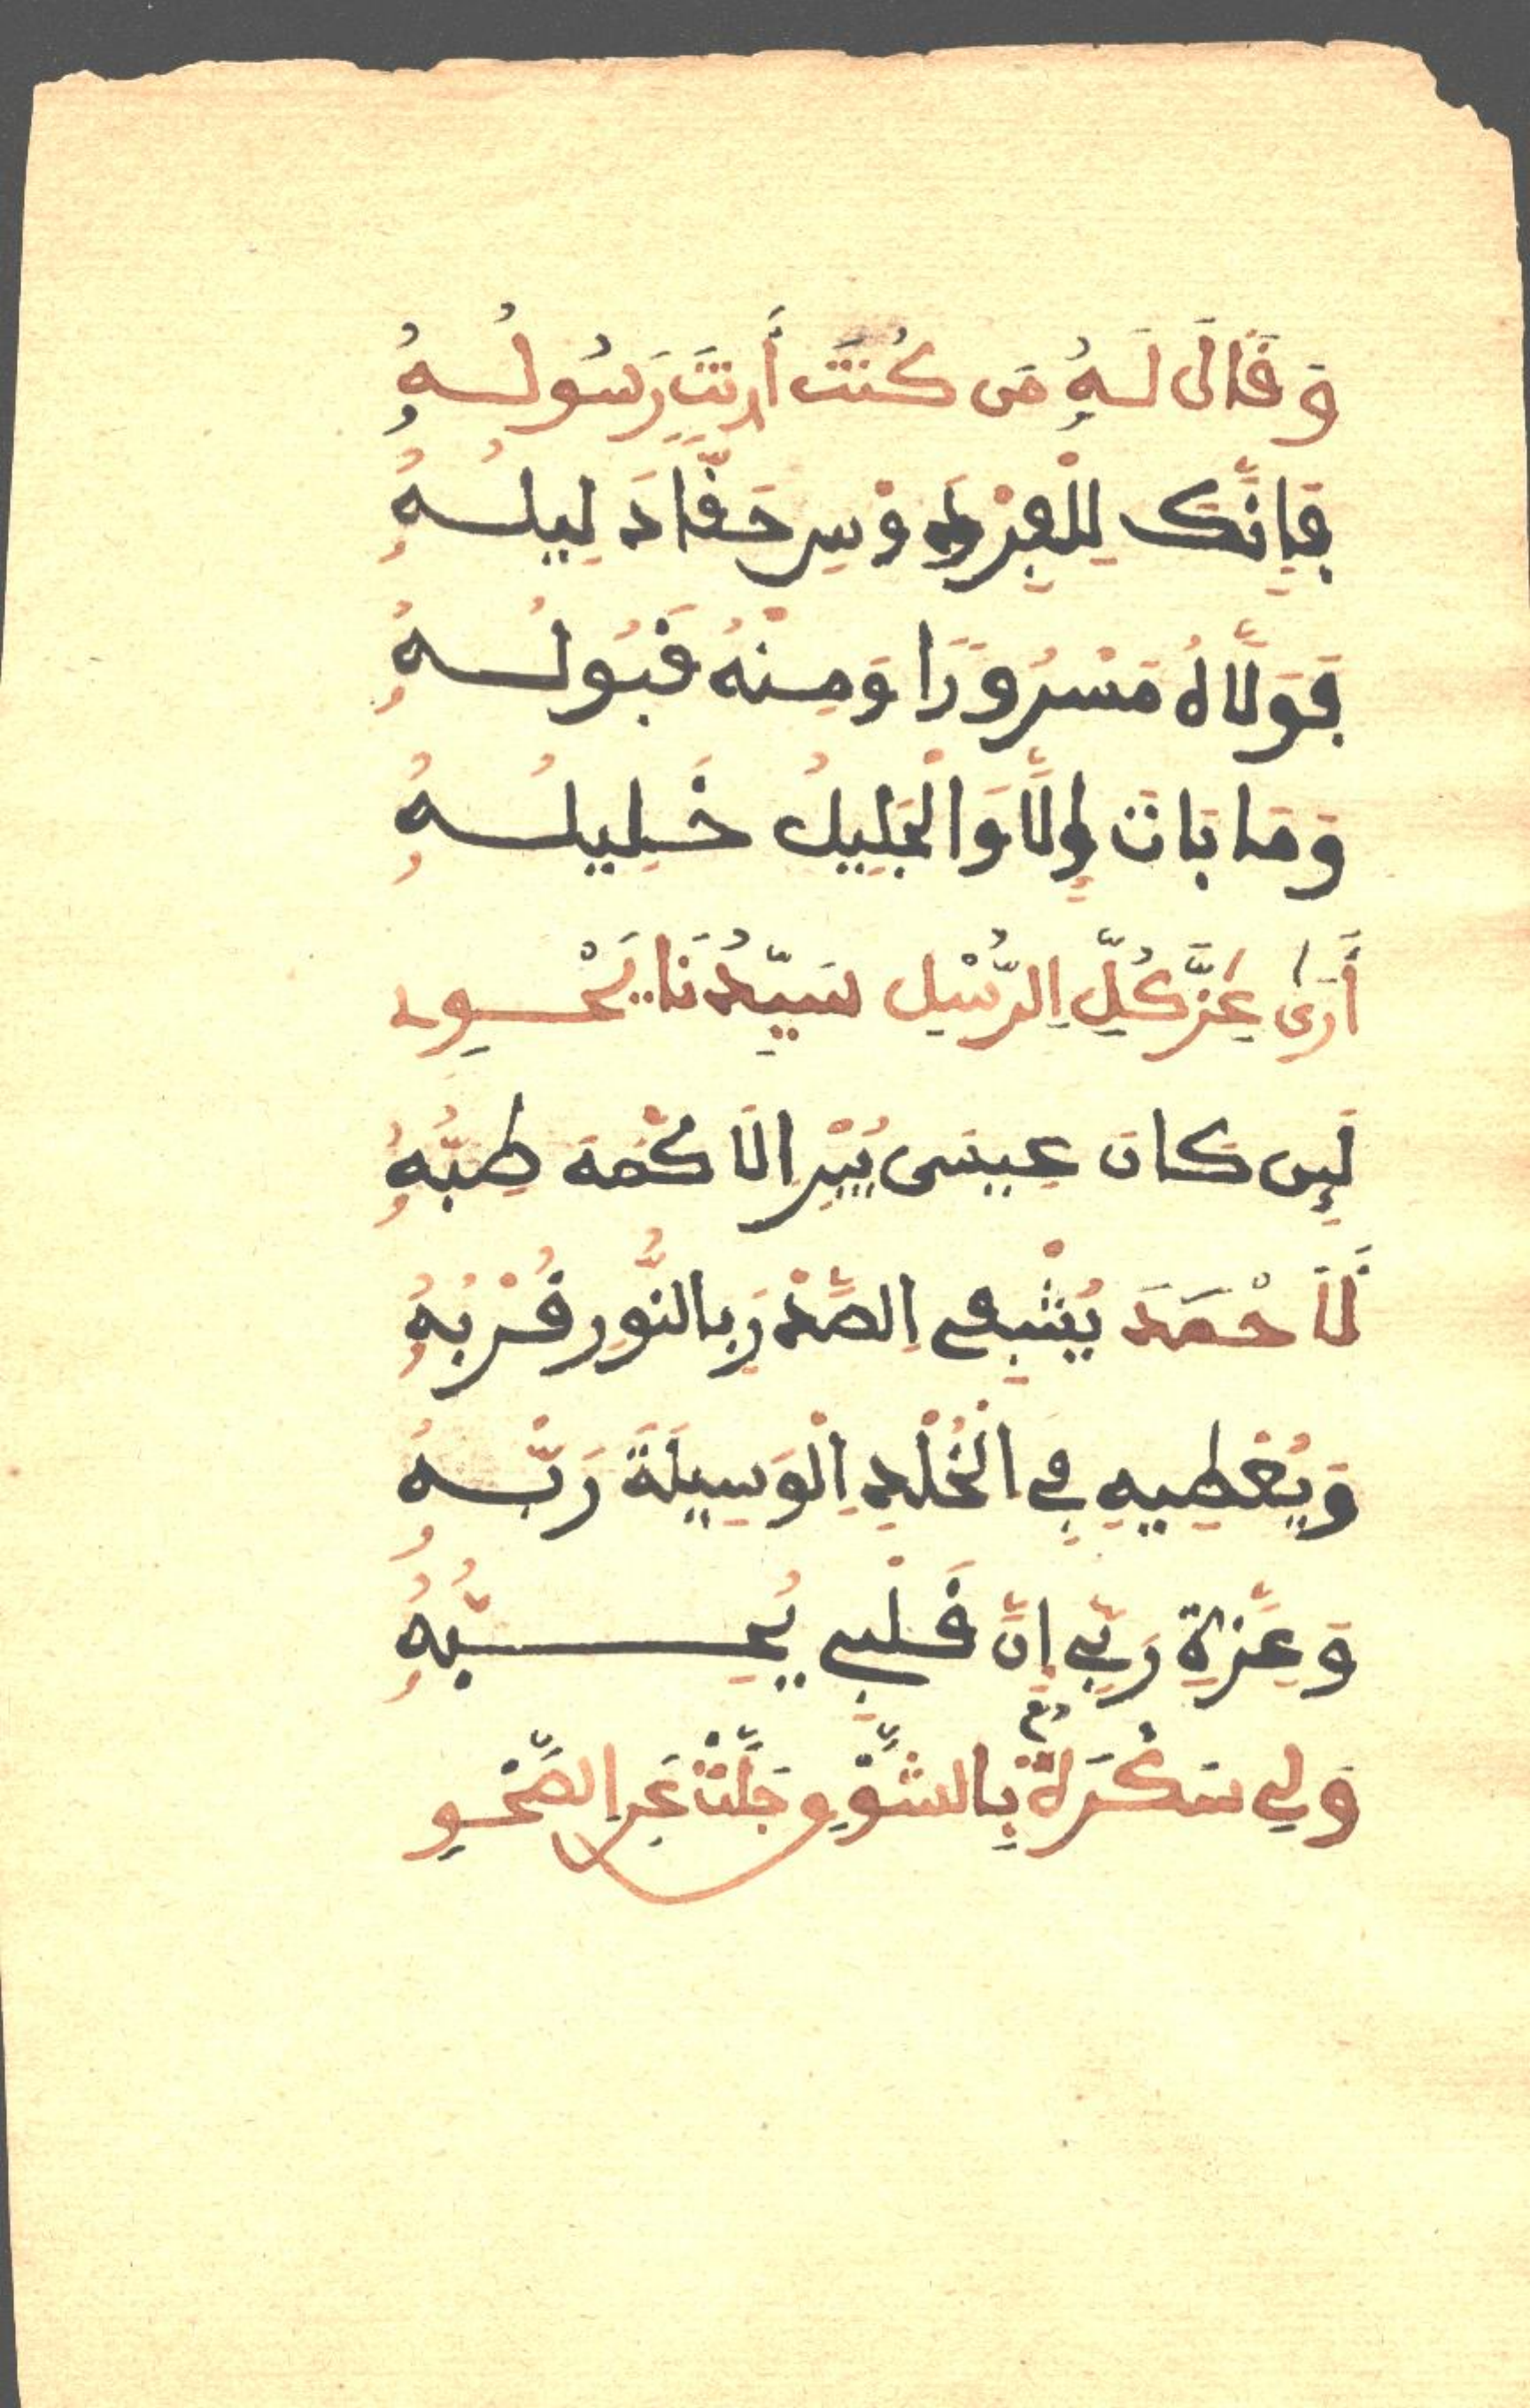 وَقَالَ لَهُ مَن كُنتَ أَنتَ رَسُولُهُ
فَإِنَّكَ لِلْفِرْدَوْسِ حَقًّا دَلِيلُهُ
فَوَلَّاهُ مَسْرُورًا وَمِنْهُ قَبُولُهُ
وَمَا بَاتَ إِلَّا وَالْجَلِيلُ خَلِيلُهُ
أَرَى عِزَّ كُلِّ الرُّسْلِ سَيِّدُنَا يَحْوِي
لَئِن كَانَ عِيسَى يُبْرِ الَاكْمَهَ طِبُّهُ
لَأَحْمَدَ يُشْفِي الصَّدْرَ بِالنُّورِ قُرْبُهُ
وَيُعْطِيهِ فِي الْخُلْدِ الْوَسِيلَةَ رَبُّهُ
وَعِزَّةِ رَبِّي إِنَّ قَلْبِي يُحِبُّهُ
وَلِي سَكْرَةٌ بِالشَّوْقِ جَلَّتْ عَنِ الصَّحْوِ